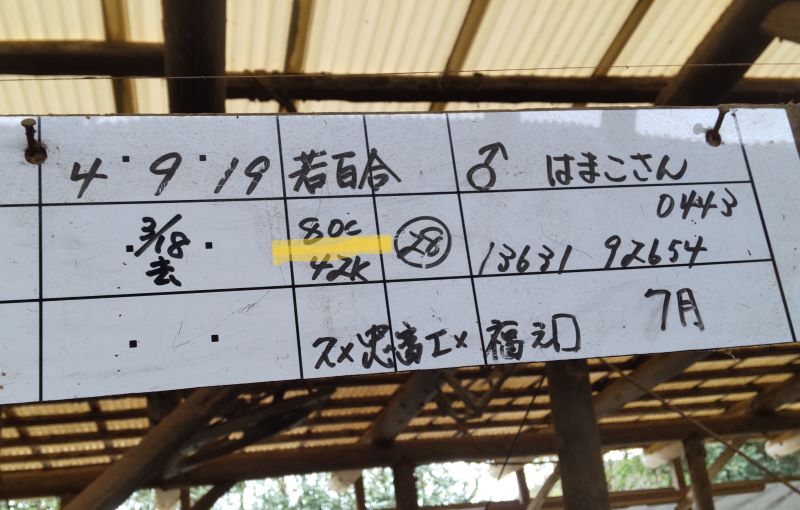 4・9・19 若百合 ♂ はまこさん
・3/18・ 80c 28 0443
去 42K 13631 92654
・・ スメ忠富エ× 福之口 7月